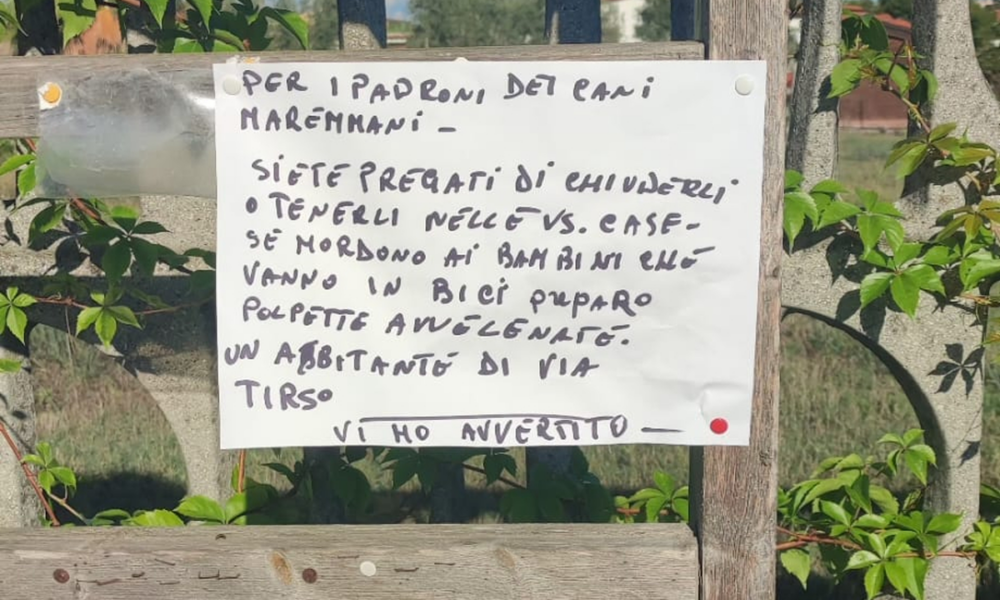 PER I PADRONI DEI CANI
MAREMMANI -
SIETE PREGATI DI CHIUDERLI
O TENERLI NELLE VS. CASE-
SE MORDONO AI BAMBINI CHE
VANNO IN BICI PREPARO
POLPETTE AVVELENATE.
UN ABBITANTE DI VIA
TIRSO
VI HO AVVERTITO -